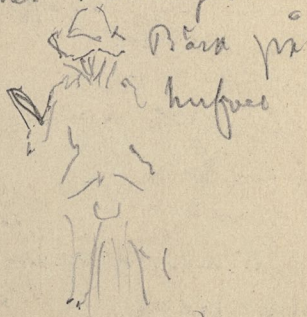 Bära på
hufvud